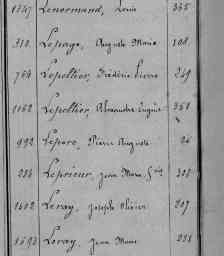 1747 Lenormand, Louis 365
310 Lepage, Auguste Marie 108
764 Lepeltier, Frédéric Pierre 249
1162 Lepeltier, Alexandre Eugène 351
992 Lepere, Pierre Auguste 26
234 Leprieur, Jean Marie 308
1402 Leray, Joseph Olivier 207
1493 Leray, Jean Marie 231